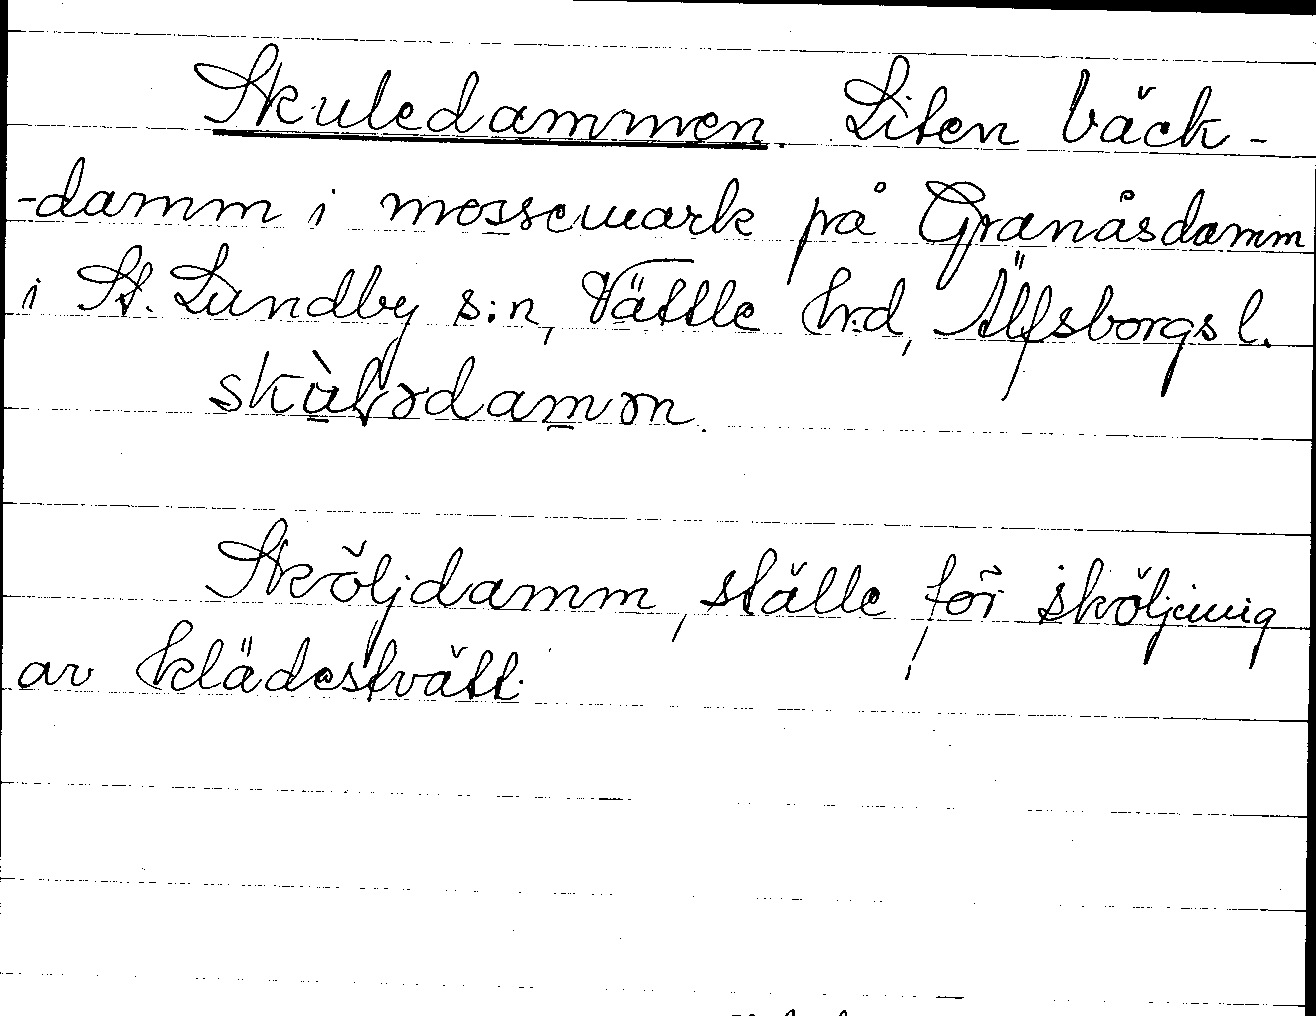 Skuledammen. Liten bäck-
-damm i mossemark på Granåsdamm
i St. Lundby s:n, Vättle h:d, Älfsborgs l.
Sköljdamm, ställe för sköljning
av klädestvätt.